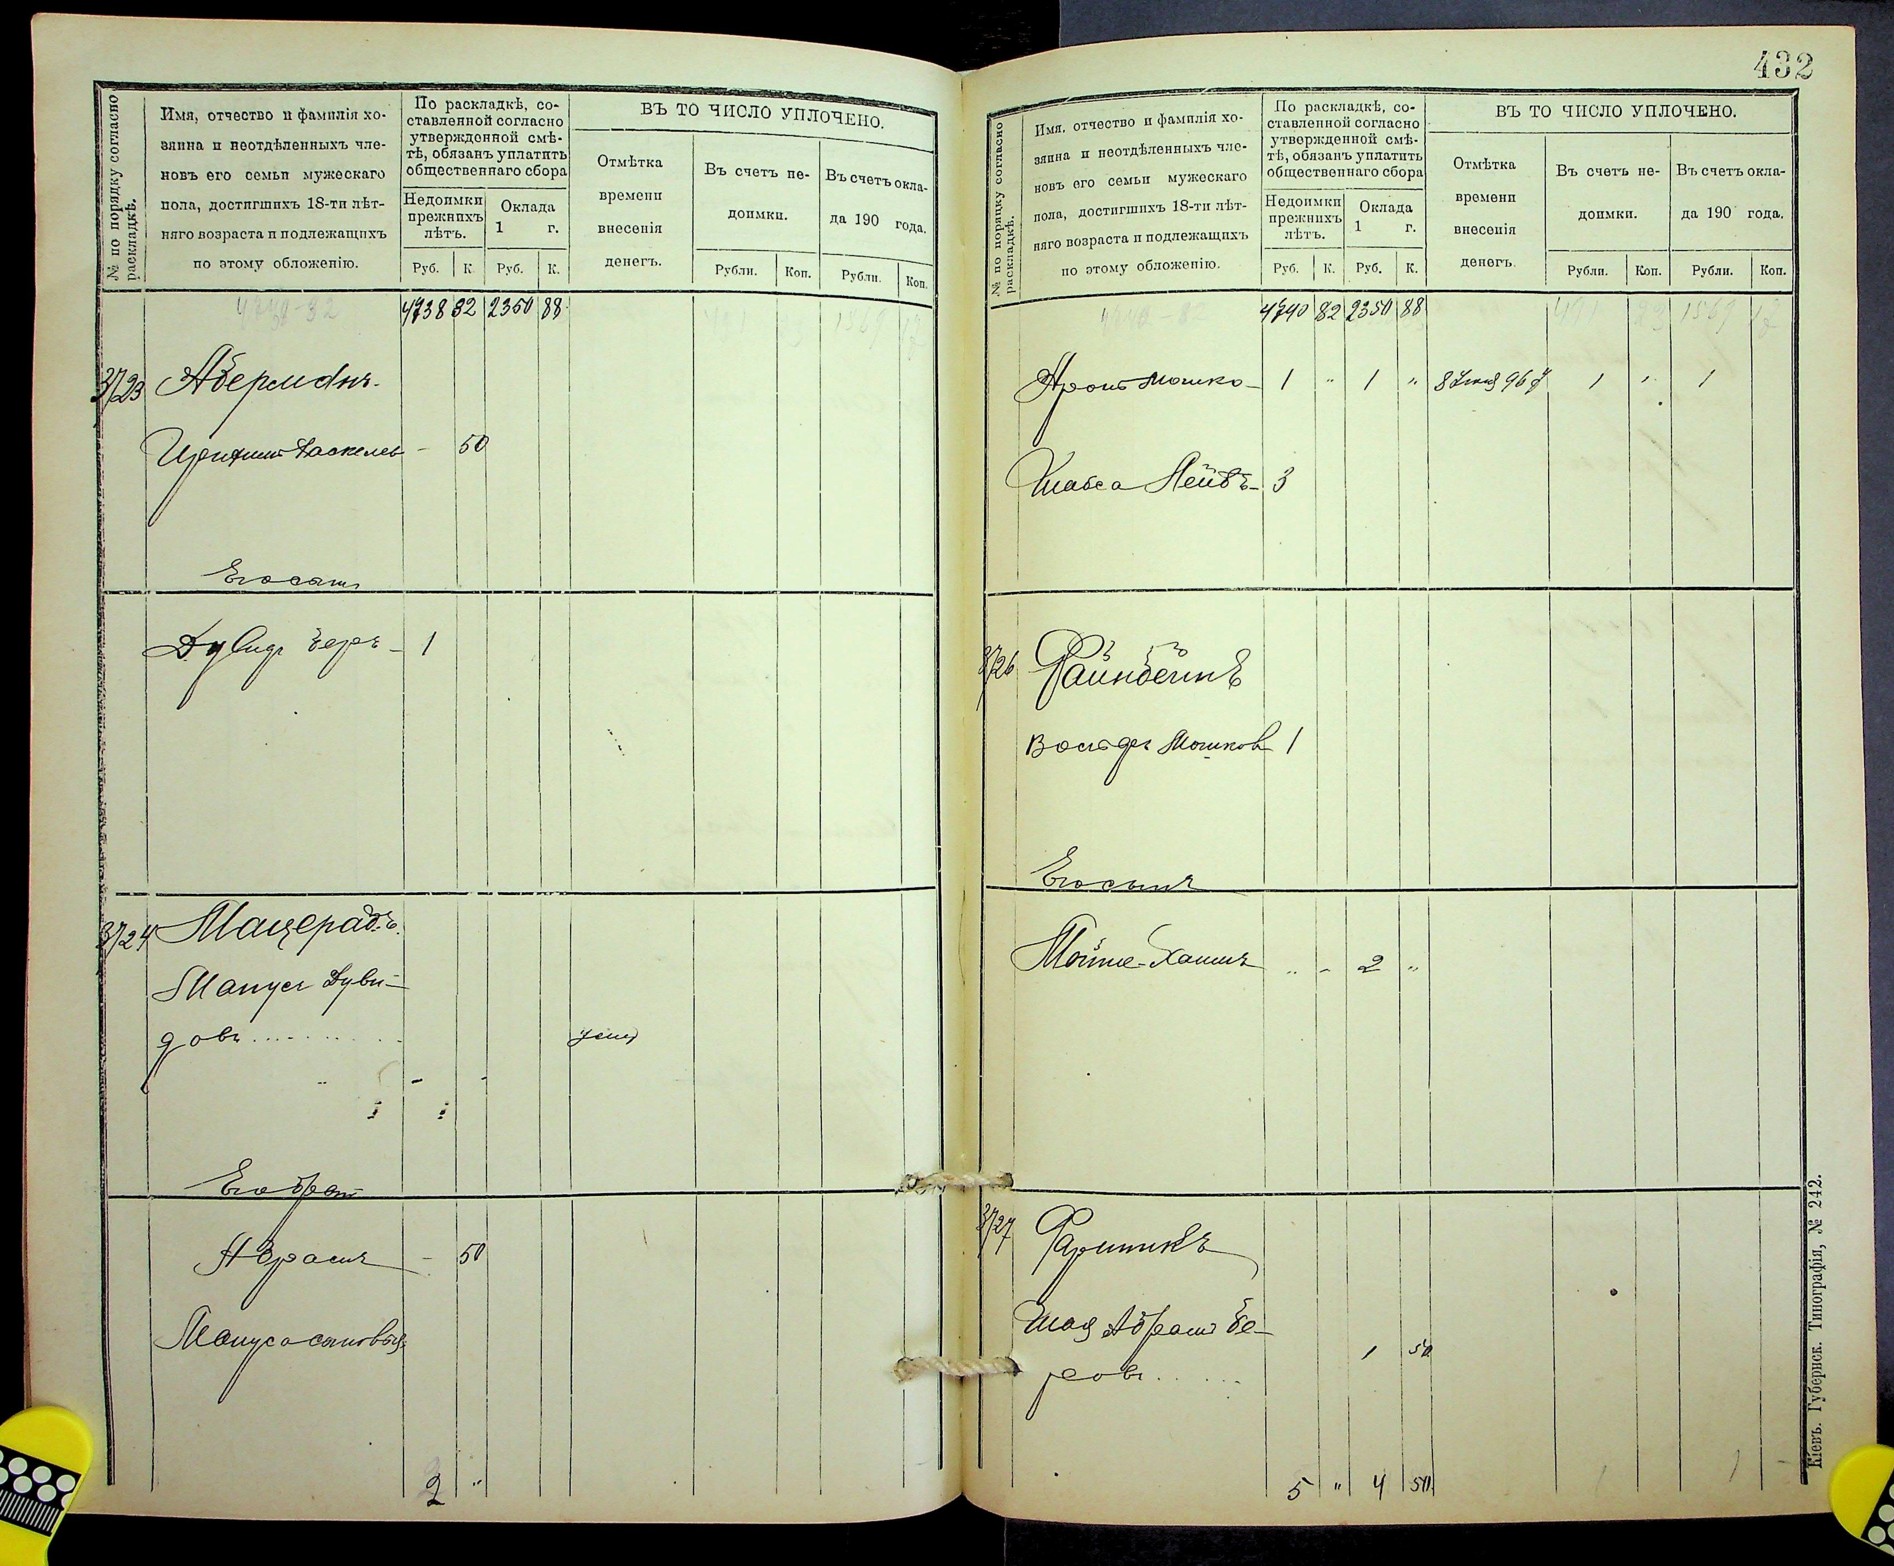 432
№ по порядку согласно раскладкѣ.
Имя, отчество и фамилія хозяина и неотдѣленныхъ членовъ его семьи мужескаго пола, достигшихъ 18-ти лѣтняго возраста и подлежащихъ по этому обложенію.
По раскладкѣ, составленной согласно утвержденной смѣтѣ, обязанъ уплатить общественнаго сбора
Недоимки прежнихъ лѣтъ.
Оклада 1 г.
Руб. К. Руб. К.
ВЪ ТО ЧИСЛО УПЛОЧЕНО.
Отмѣтка времени внесенія денегъ.
Въ счетъ недоимки.
Въ счетъ оклада 190 года.
Рубли. Коп. Рубли. Коп.
4738 82 2350 88
3723 Аберманъ
50
Его сынъ
Дувидъ Беръ 1
3724 Мацерадъ
Манусъ Дуви-
довъ
Его братъ
Аврамъ - 50
Мануса сыновья
2 "
№ по порядку согласно раскладкѣ.
Имя, отчество и фамилія хозяина и неотдѣленныхъ членовъ его семьи мужескаго пола, достигшихъ 18-ти лѣтняго возраста и подлежащихъ по этому обложенію.
По раскладкѣ, составленной согласно утвержденной смѣтѣ, обязанъ уплатить общественнаго сбора
Недоимки прежнихъ лѣтъ.
Оклада 1 г.
Руб. К. Руб. К.
ВЪ ТО ЧИСЛО УПЛОЧЕНО.
Отмѣтка времени внесенія денегъ.
Въ счетъ недоимки.
Въ счетъ оклада 190 года.
Рубли. Коп. Рубли. Коп.
4740 82 2350 88
Аронъ Мошко- 1 " 1 " 1 " 1
Шабса Лейбъ- 3
3726 Файнбейнъ
Мошковъ 1
Его сынъ
Мойше-Хаимъ " - 2 "
3727
Шая Абрамъ Бе-
ровъ 1 50
5 " 4 50
Кіевъ. Губернск. Типографія, № 242.